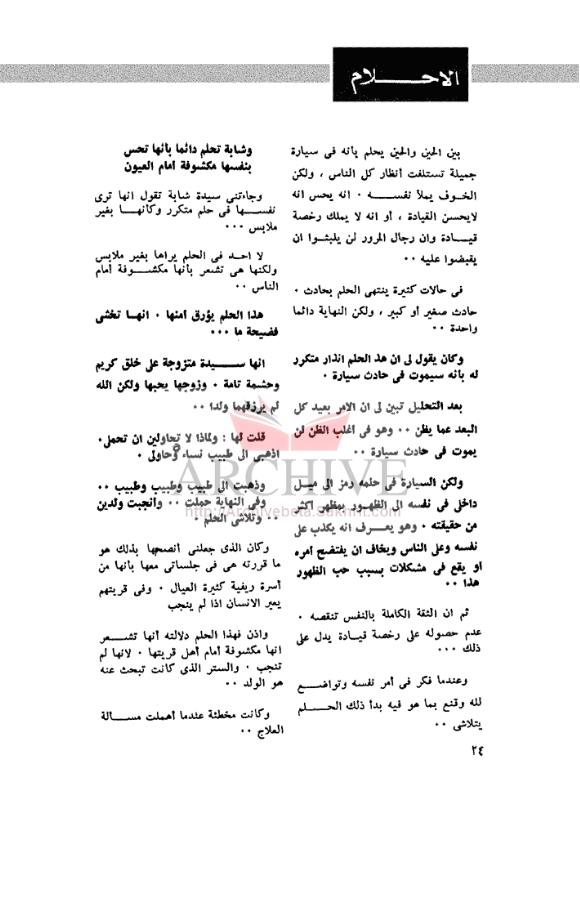 الاحلام
بين الحين والحين يحلم بأنه فى سيارة
جميلة تستلفت أنظار كل الناس ، ولكن
الخوف يملأ نفسه ٠ انه يحس انه
لايحسن القيادة ، أو انه لا يملك رخصة
قيادة وان رجال المرور لن يلبثوا ان
يقبضوا عليه ٠٠
فى حالات كثيرة ينتهى الحلم بحادث ٠
حادث صغير أو كبير ، ولكن النهاية دائما
واحدة ٠٠
وكان يقول لى ان هذ الحلم انذار متكرر
له بأنه سيموت فى حادث سيارة ٠
بعد التحليل تبين لى ان الامر بعيد كل
البعد عما يظن ٠٠ وهو فى أغلب الظن لن
يموت فى حادث سيارة ٠٠
ولكن السيارة فى حلمه رمز الى ميل
داخلى فى نفسه الى الظهور بمظهر أكثر
من حقيقته ٠ وهو يعرف انه يكذب على
نفسه وعلى الناس ويخاف ان يفتضح أمره
او يقع فى مشكلات بسبب حب الظهور
هذا ٠٠
ثم ان الثقة الكاملة بالنفس تنقصه ٠
عدم حصوله على رخصة قيادة يدل على
ذلك ٠٠٠
وعندما فكر فى أمر نفسه وتواضع
لله وقنع بما هو فيه بدأ ذلك الحلم
يتلاشى ٠٠
وشابة تحلم دائما بأنها تحس
بنفسها مكشوفة أمام العيون
وجاءتنى سيدة شابة تقول انها ترى
نفسها فى حلم متكرر وكأنها بغير
ملابس ٠٠٠
لا احد فى الحلم يراها بغير ملابس
ولكنها هى تشعر بأنها مكشوفة أمام
الناس ٠٠
هذا الحلم يؤرق أمنها ٠ انها تخشى
فضيحة ما ٠٠٠
انها سيدة متزوجة على خلق كريم
وحشمة تامة ٠ وزوجها يحبها ولكن الله
لم يرزقهما ولدا ٠٠
قلت لها : ولماذا لا تحاولين ان تحملى٠
اذهبى الى طبيب نساء وحاولى ٠
وذهبت الى طبيب وطبيب وطبيب ٠٠
وفى النهاية حملت ٠٠ وأنجبت ولدين
٠٠ وتلاشى الحلم ٠
وكان الذى جعلنى أنصحها بذلك هو
ما قررته هى فى جلساتى معها بأنها من
أسرة ريفية كثيرة العيال ٠ وفى قريتهم
يعير الانسان اذا لم ينجب
واذن فهذا الحلم دلالته أنها تشعر
انها مكشوفة أمام أهل قريتها ٠ لانها لم
تنجب ٠ والستر الذى كانت تبحث عنه
هو الولد ٠٠
وكانت مخطئة عندما أهملت مسالة
العلاج ٠٠
٢٤
ARCHIVE
http://Archivebeta.Sakhrit.com